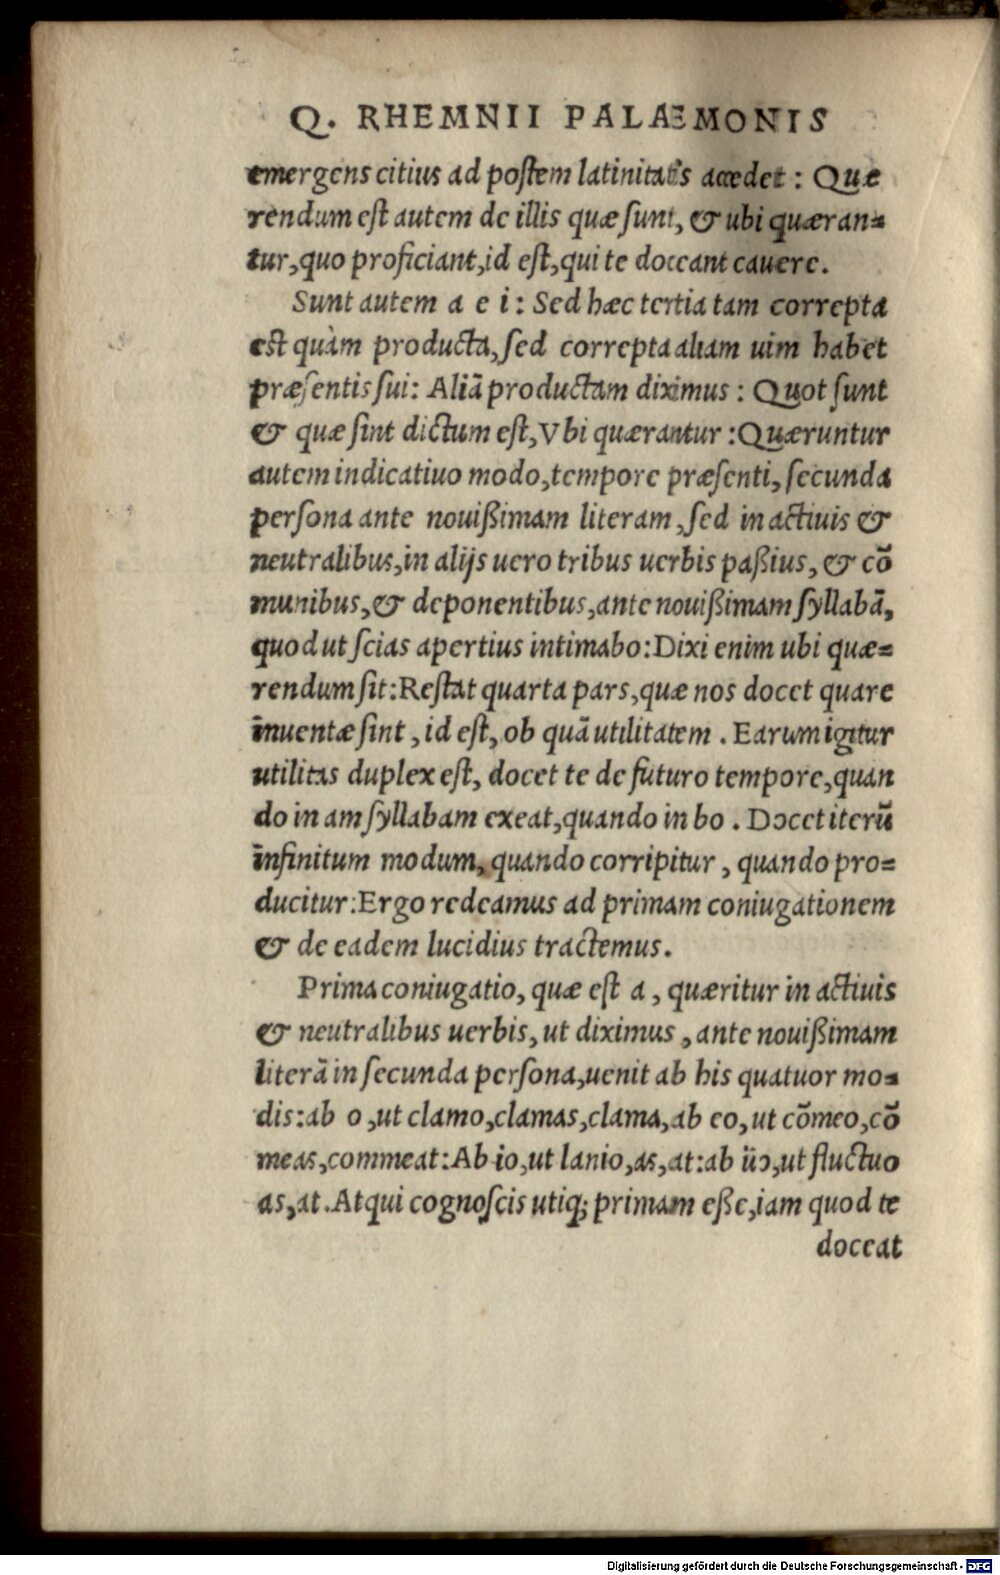 Q. RHEMNII PALAEMONIS
emergens citius ad postem latinitatis accedet : Quæ
rendum est autem de illis quæ sunt, & ubi quæran=
tur, quo proficiant, id est, qui te doceant cauere.
Sunt autem a e i : Sed hæc tertia tam correpta
est quàm producta, sed correpta aliam uim habet
præsentis sui : Aliã productam diximus : Quot sunt
& quæ sint dictum est, Vbi quærantur : Quæruntur
autem indicatiuo modo, tempore præsenti, secunda
persona ante nouißimam literam, sed in actiuis &
neutralibus, in alijs uero tribus uerbis paßius, & cõ
munibus, & deponentibus, ante nouißimam syllabã,
quod ut scias apertius intimabo : Dixi enim ubi quæ=
rendum sit : Restat quarta pars, quæ nos docet quare
inuentæ sint, id est, ob quã utilitatem . Earum igitur
utilitas duplex est, docet te de futuro tempore, quan
do in am syllabam exeat, quando in bo . Docet iterũ
infinitum modum, quando corripitur, quando pro=
ducitur : Ergo redeamus ad primam coniugationem
& de eadem lucidius tractemus.
Prima coniugatio, quæ est a, quæritur in actiuis
& neutralibus uerbis, ut diximus, ante nouißimam
literã in secunda persona, uenit ab his quatuor mo=
dis : ab o, ut clamo, clamas, clama, ab eo, ut cõmeo, cõ
meas, commeat : Ab io, ut lanio, as, at : ab üo, ut fluctuo
as, at. Atqui cognoscis utiq; primam eße, iam quod te
doceat
Digitalisierung gefördert durch die Deutsche Forschungsgemeinschaft - DFG